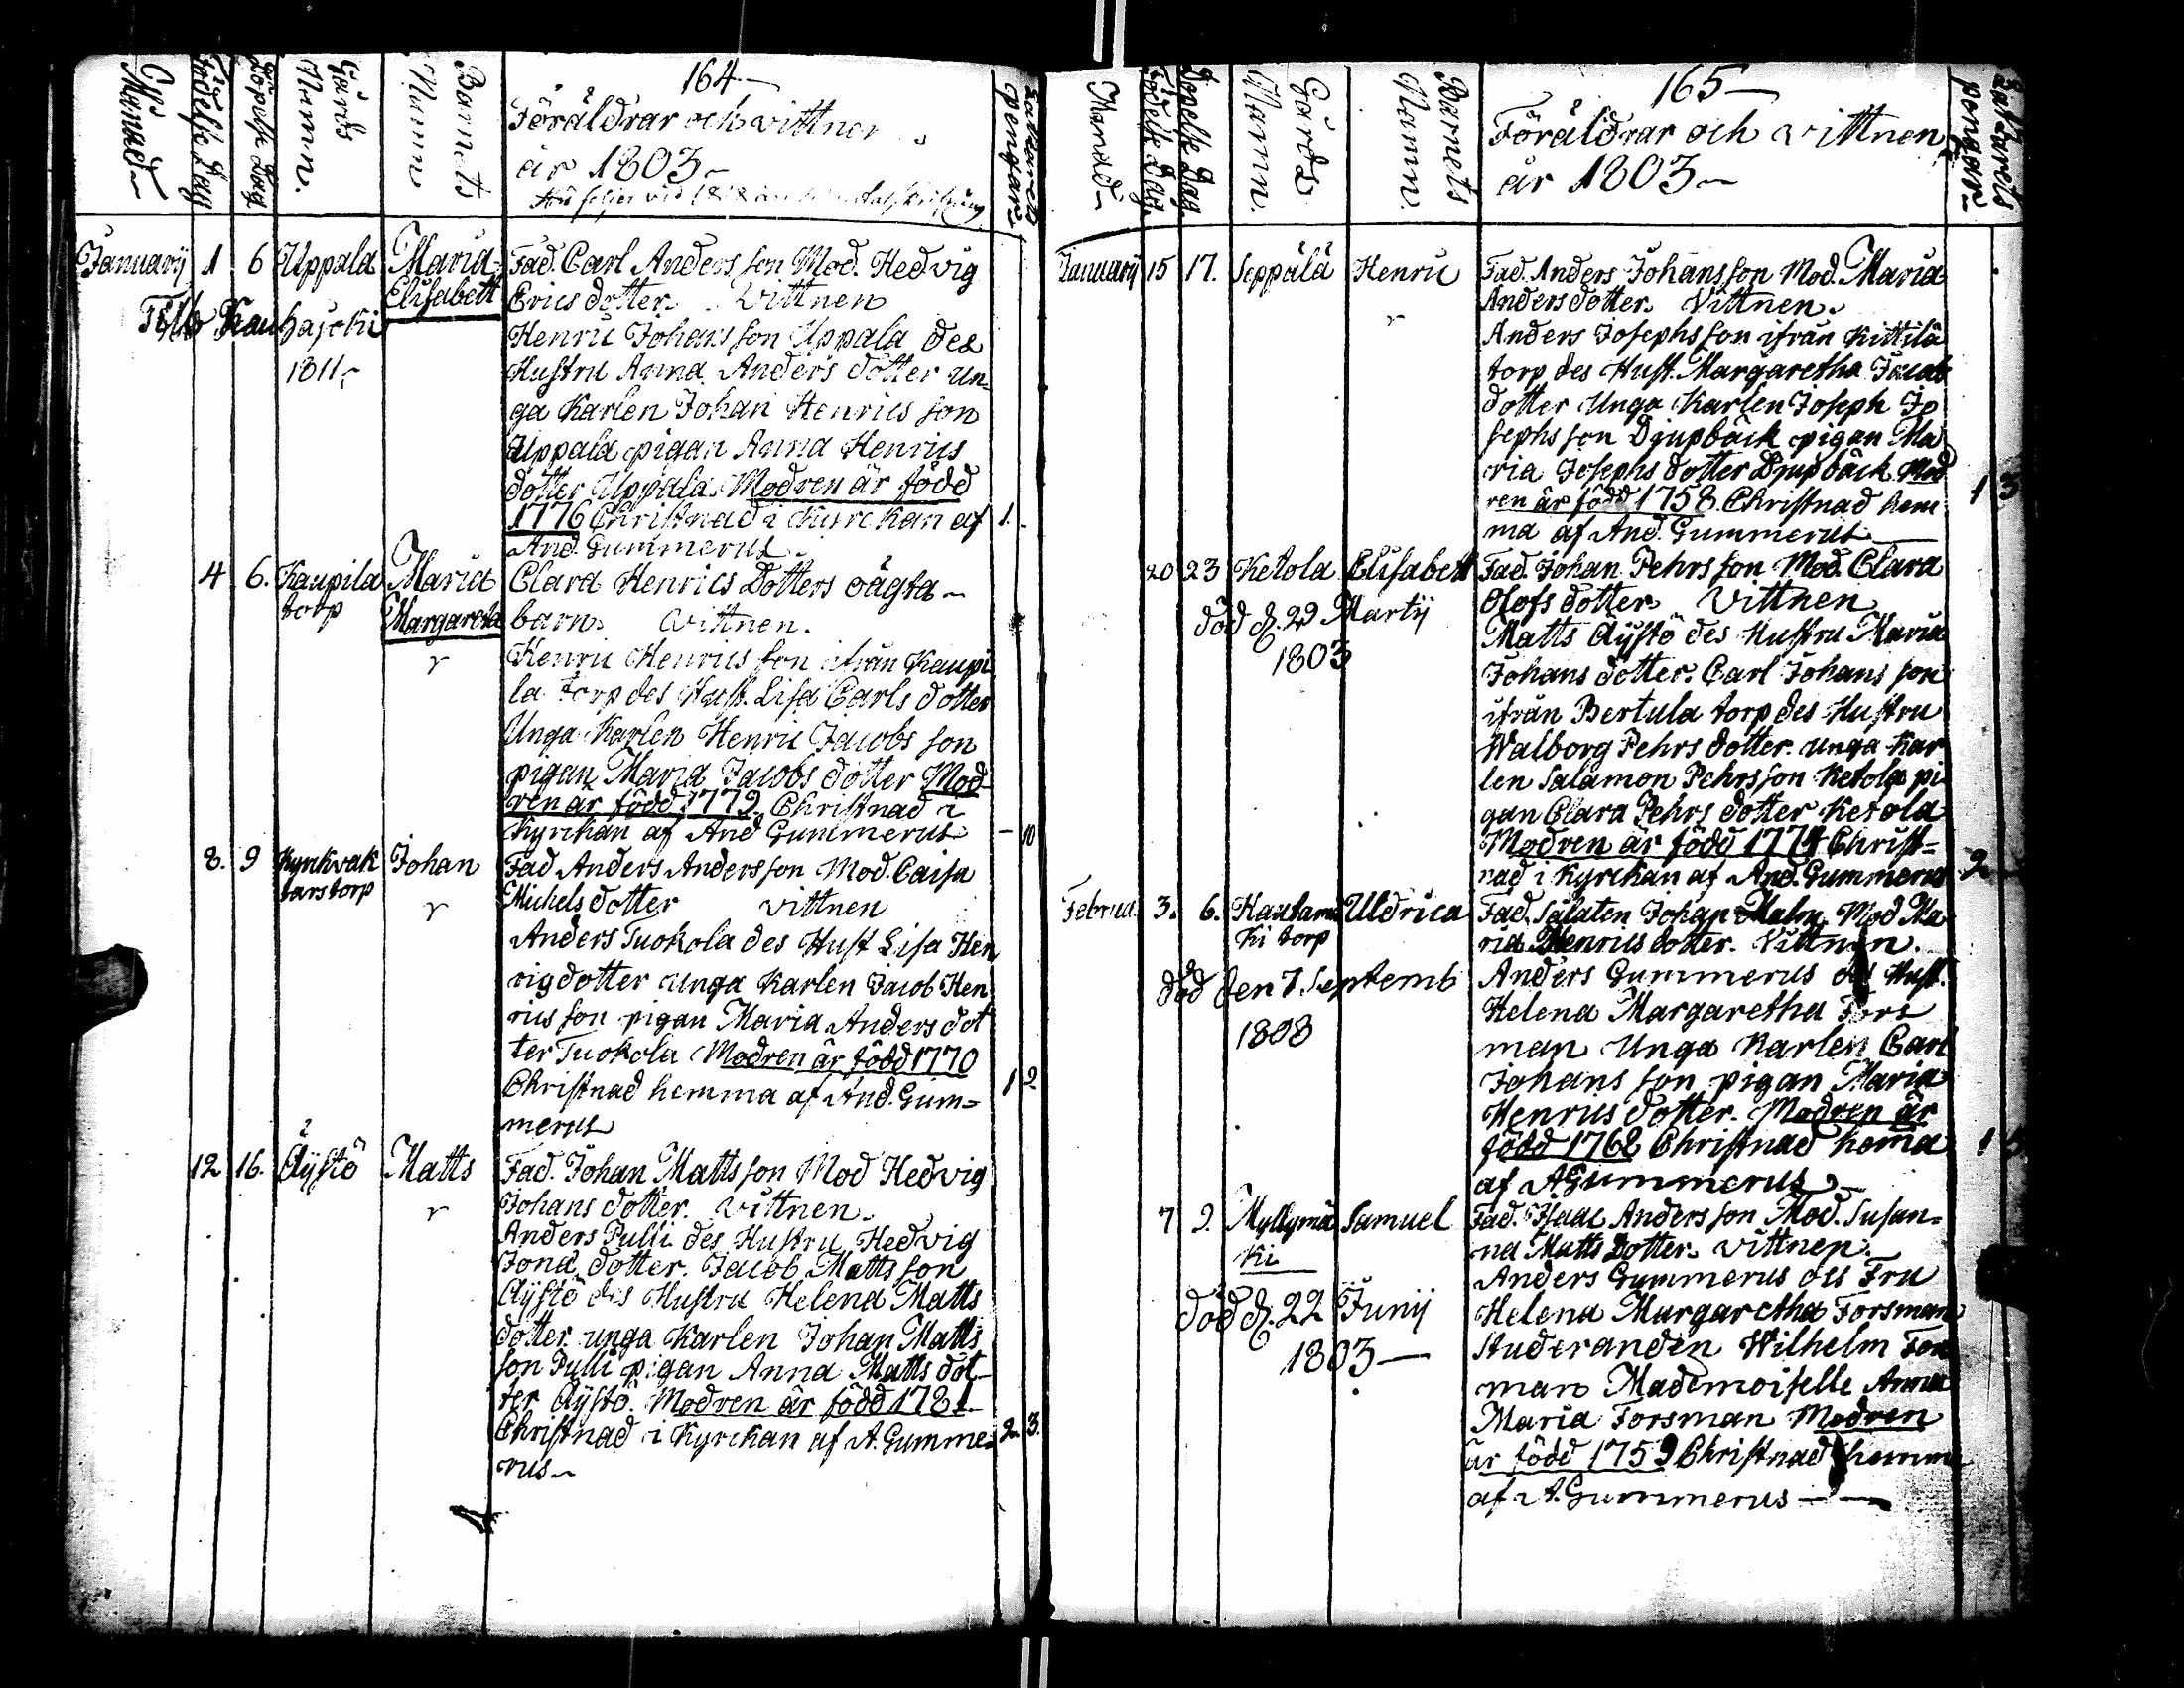 Månad
Födelse Dag
Döpelse Dag
Gårds
Namn.
Barnets
Namn
164
Föräldrar och vittnen
år 1803
pengar
January 1 6 Uppala Maria
Elisabett
Fad. Carl Andersson Mod. Hedvig
Erics dotter. Vittnen
Henric Johansson Uppala des
Hustru Anna Anders dotter un
ga Karlen Johan Henrics son
Uppala pigan Anna Henrics
dotter Uppala. Modren är född
1776 Christnad i Kyrckan af
And. Gummerus
1.
Kauhajocki
1811
4 6. Kaupila
torp
Maria
Margareta
Clara Henrics Dotters oägta
barn. Vittnen.
Henric Henrics son ifrån Kaupi
la torp des Hust. Lisa Carls dotter
Unga Karlen Henric Jacobs son
pigan Maria Jacobs dotter Mod
ren är född 1779. Christnad i
Kyrckan af And Gummerus
10
8. 9
tarstorp
Johan
Fad Anders Andersson Mod. Caisa
Michels dotter vittnen
Anders Tuokola des Hust Lisa Hen
rigdotter unga Karlen Jacob Hen
rics son pigan Maria Anders dot
ter Tuokola Modren är född 1770
Christnad hemma af And. Gum=
merus
1 9.
12 16. Äystö Matts
Fad. Johan Mattsson Mod Hedvig
Johans dotter. Vittnen.
Anders Pulli des Hustru Hedvig
Jona dotter. Jacob Matts son
Äystö des Hustru Helena Matts
dotter. unga Karlen Johan Matts
son Pulli pigan Anna Matts dot
ter Äystö. Modren är född 1781
Christnad i Kyrckan af A. Gumme=
rus
2. 3.
Månad
Födelse Dag.
Döpelse Dag.
Gårds
Namn.
Barnets
Namn.
165
Föräldrar och vittnen
år 1803
pengar
January 15 17. Seppälä Henric
Fad. Anders Johansson Mod. Maria
Andersdotter. Vittnen.
Anders Josephsson ifrån Kittilä
torp des Hust. Margaretha Jacob
dotter Unga Karlen Joseph Jo
sephsson Djupbäck pigan Ma
ria Josephs dotter Djupbäck. Mod
ren är född 1758. Christnad hem
ma af And. Gummerus
1 3
20 23 Ketola Elisabett
död d. 29 Martij
1803
Fad. Johan Pehrsson Mod. Clara
Olofs dotter. Vittnen
Matts Äystö des Hustru Maria
Johans dotter. Carl Johans son
ifrån Bertula torp des Hustru
Walborg Pehrs dotter. unga Kar
len Salamon Pehrsson Ketola pi
gan Clara Pehrs dotter Ketola
Modren är född 1774 Christ=
nad i Kyrckan af And. Gummerus
2
Februa. 3. 6. Hautamä
ki torp
Uldrica
död den 7 Septemb
1808
Fad. Johan Malm Mod Ma
ria Henrics dotter. Vittnen.
Anders Gummerus des Hust.
Helena Margaretha Fors
man Unga Karlen Carl
Johans son pigan Maria
Henrics dotter. Modren är
född 1768 Christnad hema
af A Gummerus
1
7 9. Myllymä
ki
Samuel
död d. 22 Junij
1803
Fad. Isaac Andersson Mod. Susan=
na Matts Dotter. vittnen.
Anders Gummerus des Fru
Helena Margaretha Forsman
Studeranden Wilhelm Fors
man Mademoiselle Anna
Maria Forsman Modren
är född 1759 Christnad hemma
af A. Gummerus